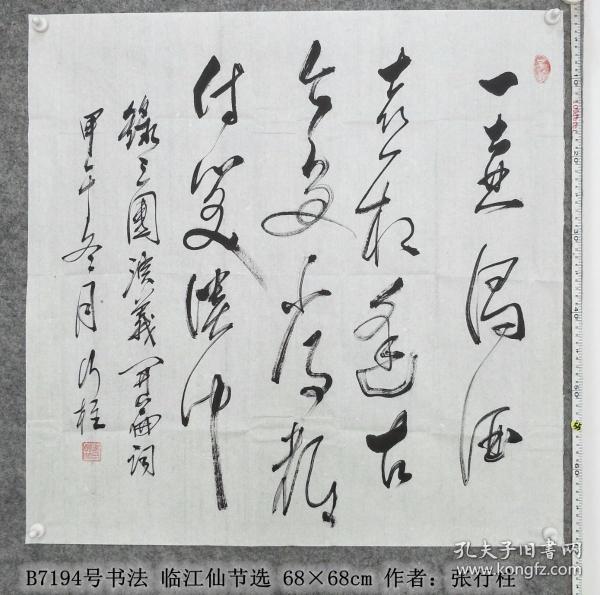 一壶浊酒
喜相逢古
今多少事都
付笑谈中
錄三國演義開篇词
甲午冬月行柱
B7194号书法 临江仙节选 68×68cm 作者：张行柱
孔夫子旧书网